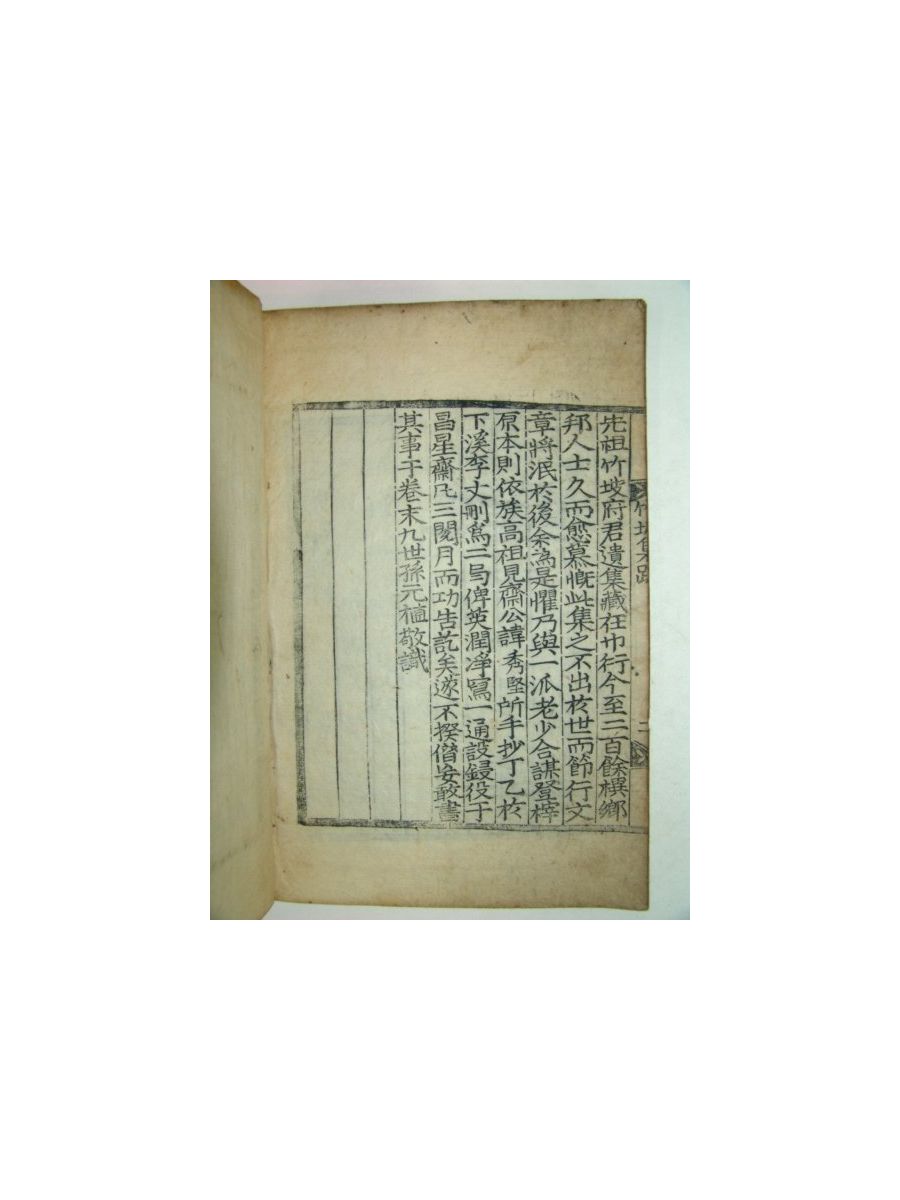 竹坡集跋
二
先祖竹坡府君遺集藏在巾衍今至三百餘禩鄉
邦人士久而愈慕慨此集之不出於世而節行文
章將泯於後余爲是懼乃與一派老少合謀登梓
原本則依族高祖見齋公諱秀堅所手抄丁乙於
下溪李丈刪爲二弓俾英潤凈寫一通設鋟役于
昌星齋凡三閱月而功告訖矣遂不揆僭妄敢書
其事于卷末九世孫元植敬識